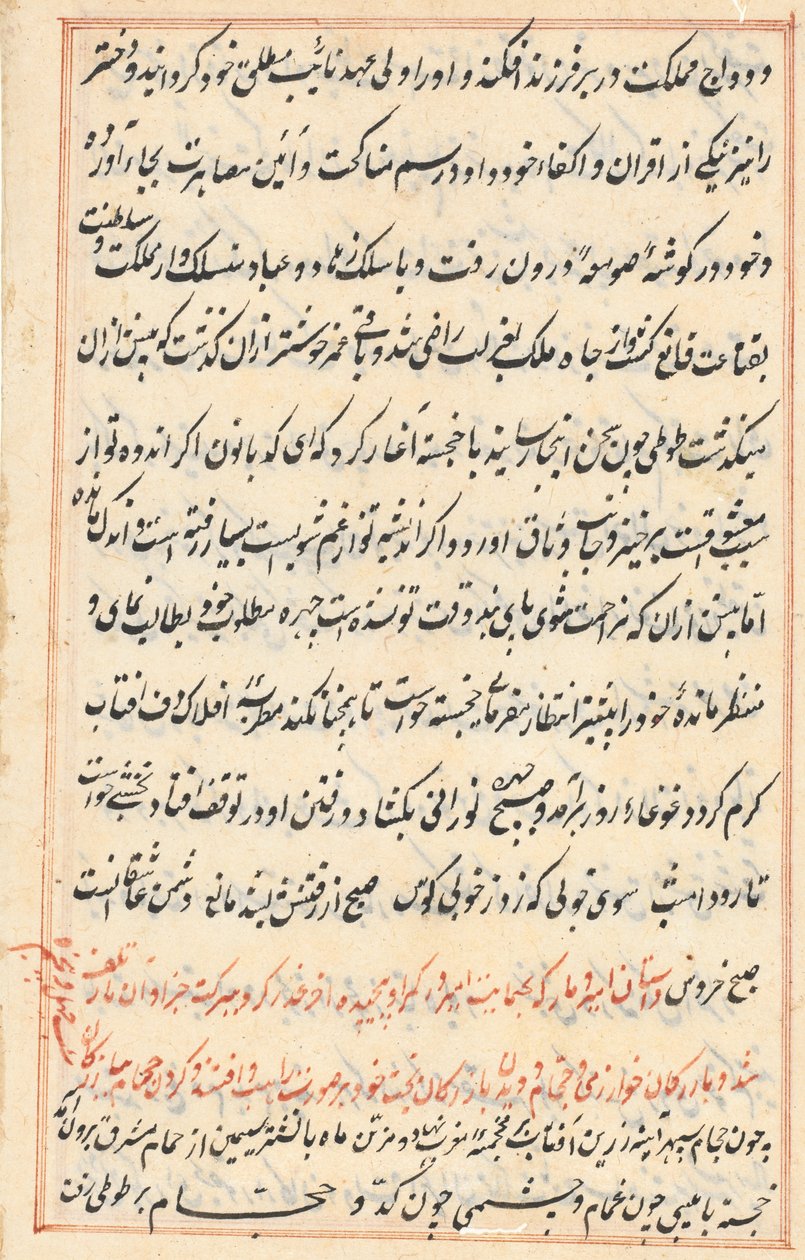 و دواج مملکت در بر فرزند افکند و او را ولی عهد نائب مطلق خود کردانید و دختر
را نیز بیکی از اقران و اکفاء خود داد و در رسم مناکحت و آئین مصاهرت بجاء آورده
و خود در کوشهٔ صومعهٔ درون رفت و با سلک زهاد و عباد منسلک و از مملکت و سلطنت
بقناعت قانع کشت و از جاه ملک بعزلت راضی شد و باقی عمر خوشتر ازان کذشت که پیش ازان
میکذشت طوطی چون سخن اینجا رسانید با خجسته آغاز کرد که ای کدبانو اکر اندوه تو از
سبب معشوقست برخیز و جانب وثاق او رو و اکر اندیشه تو از غم شویست بسیار رفته است و اندک مانده
امّا پیش ازان که مزاحمت شوی پای بند وقت تو نشده است چهره مطلوب خود بطالب نمای و
منتظر ماندهٔ خود را بیش انتظار مفرمای خجسته خواست تا همچنان کند مطربهٔ افلاک دف افتاب
کرم کرد و غوغاء روز برآمد و صبح چهره نورانی بکشاد و رفتن او در توقف افتاد نخشبی خواست
تا رود امشب سوی خوبی که زد ز خوبی کوس صبح از رفتنش بشد مانع دشمن عاشقانست
صبح خروس داستان امیر و مار که بحمایت امیر در کمر او پیچیده اخر غدر کرد و ببرکت جزاو ان مار تلف
شد و بازرکان خوارزمی و حجام و دیدن بازرکان بخت خود بر صورت راهب و افتنه و کردن حجام با بازرکان
چون حجام سپهر آینه زرین آفتاب در محجمهٔ مغرب نهاد و مزین ماه با نشتر سیمین از حمام مشرق برون آمد
خجسته با عیبی چون غمام و چشمی چون کدّ و حجّام بر طوطی رفت